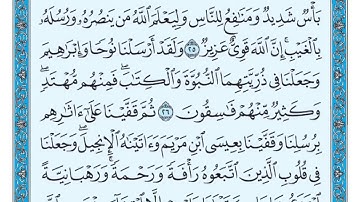 بَأْسٌ شَدِيدٌ وَمَنَٰفِعُ لِلنَّاسِ وَلِيَعْلَمَ ٱللَّهُ مَن يَنصُرُهُۥ وَرُسُلَهُۥ
بِٱلْغَيْبِ إِنَّ ٱللَّهَ قَوِىٌّ عَزِيزٌ ٢٥ وَلَقَدْ أَرْسَلْنَا نُوحًا وَإِبْرَٰهِيمَ
وَجَعَلْنَا فِى ذُرِّيَّتِهِمَا ٱلنُّبُوَّةَ وَٱلْكِتَٰبَ فَمِنْهُم مُّهْتَدٍ
وَكَثِيرٌ مِّنْهُمْ فَٰسِقُونَ ٢٦ ثُمَّ قَفَّيْنَا عَلَىٰٓ ءَاثَٰرِهِم
بِرُسُلِنَا وَقَفَّيْنَا بِعِيسَى ٱبْنِ مَرْيَمَ وَءَاتَيْنَٰهُ ٱلْإِنجِيلَ وَجَعَلْنَا
فِى قُلُوبِ ٱلَّذِينَ ٱتَّبَعُوهُ رَأْفَةً وَرَحْمَةً وَرَهْبَانِيَّةً